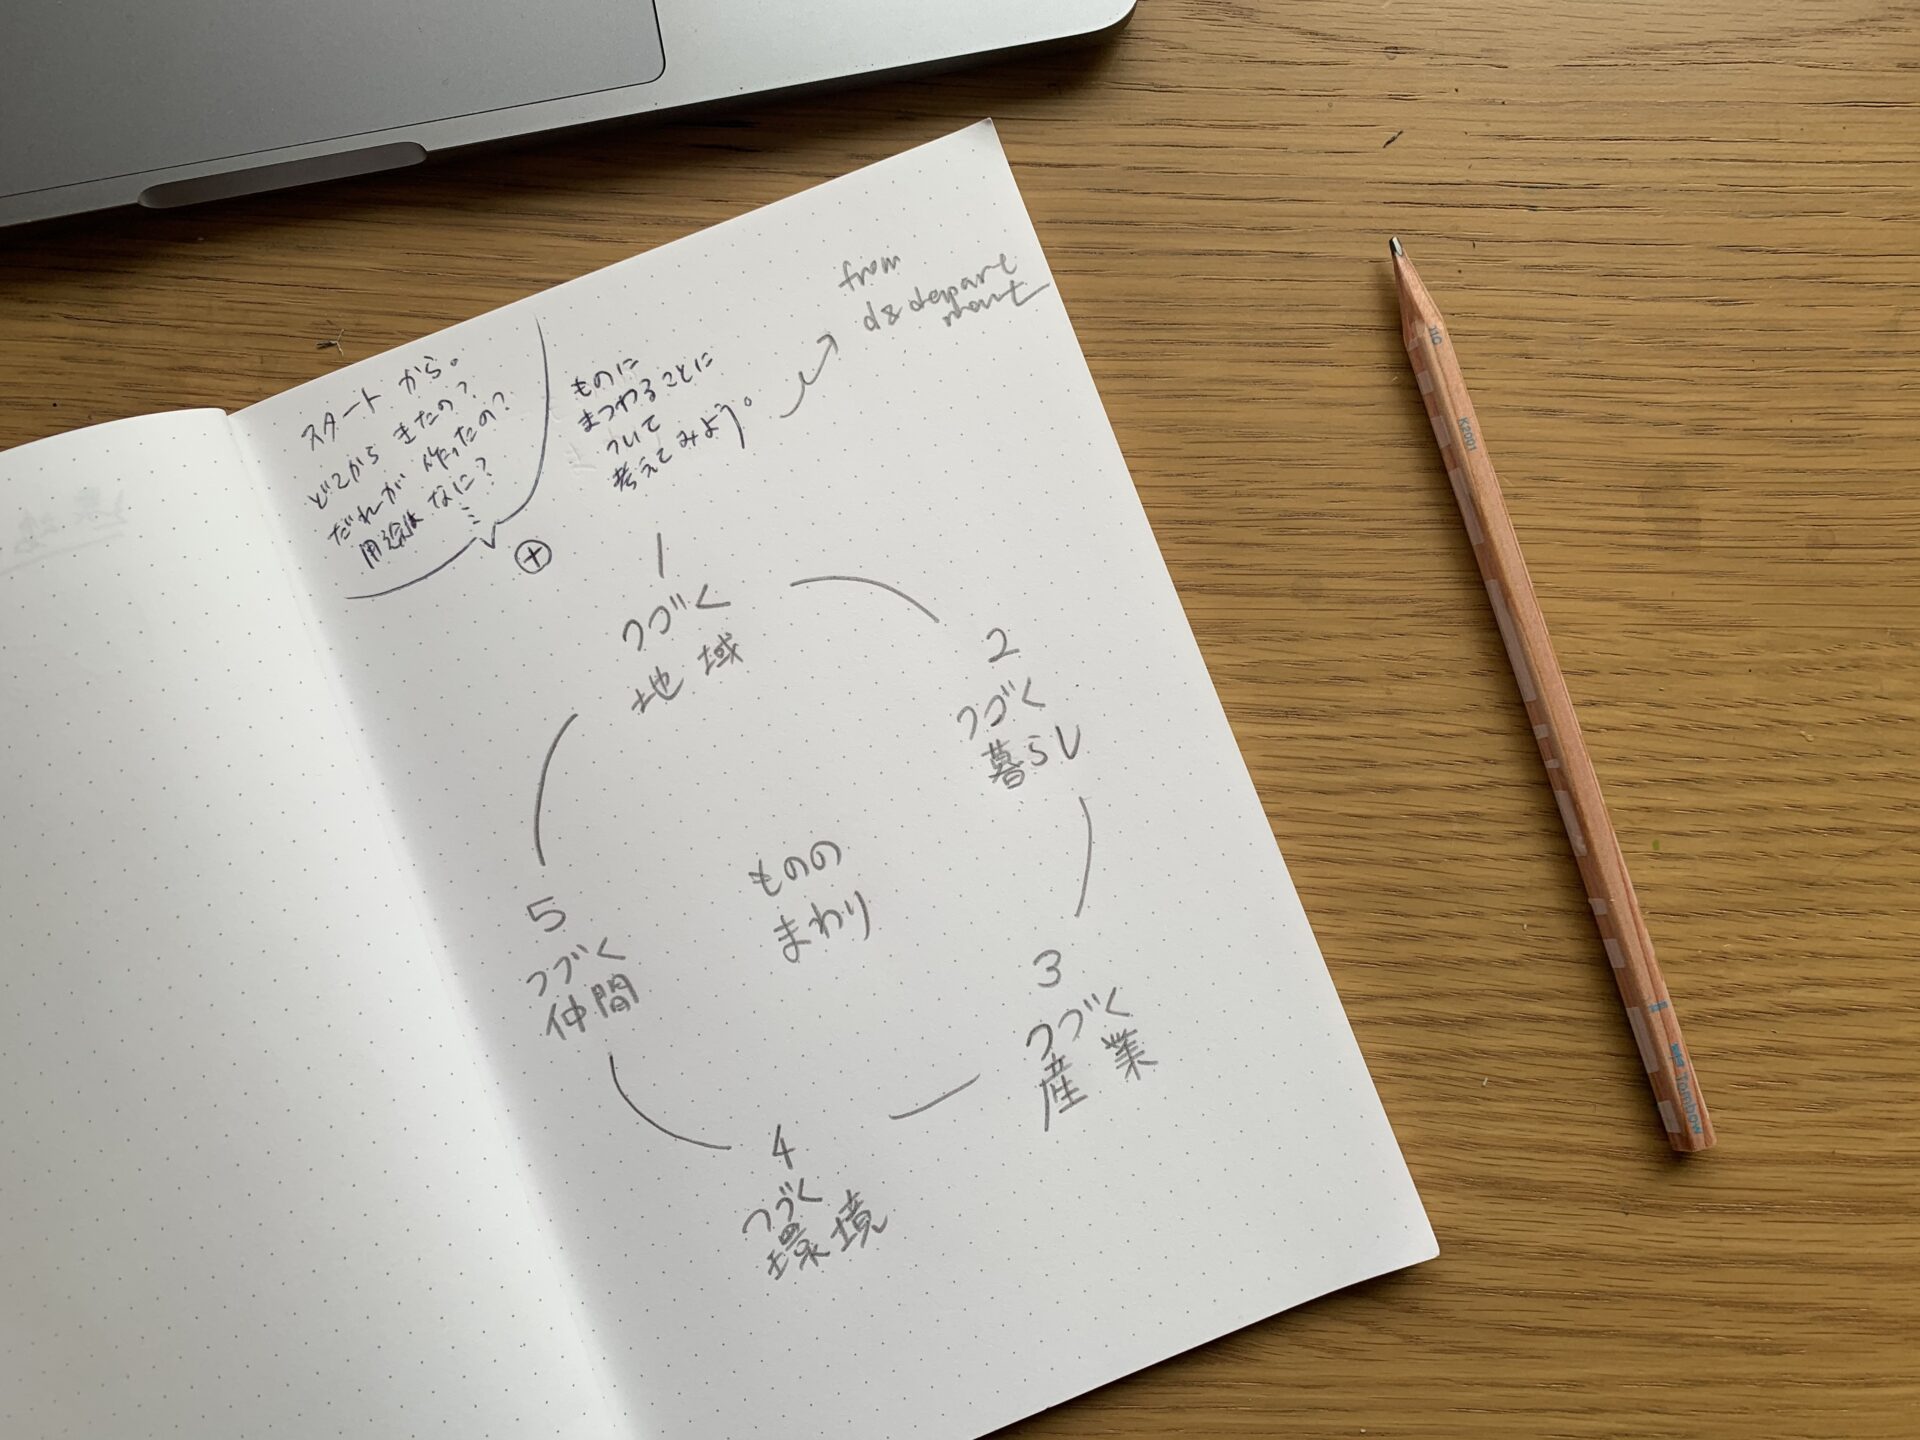 スタートから。
どこからきたの?
だれが作ったの?
用途はなに?
ものに
まつわることに
ついて
考えてみよう。
from
d&depart
ment
1
つづく
地域
2
つづく
暮らし
3
つづく
産業
4
つづく
環境
5
つづく
仲間
ものの
まわり
K2001
Tombow